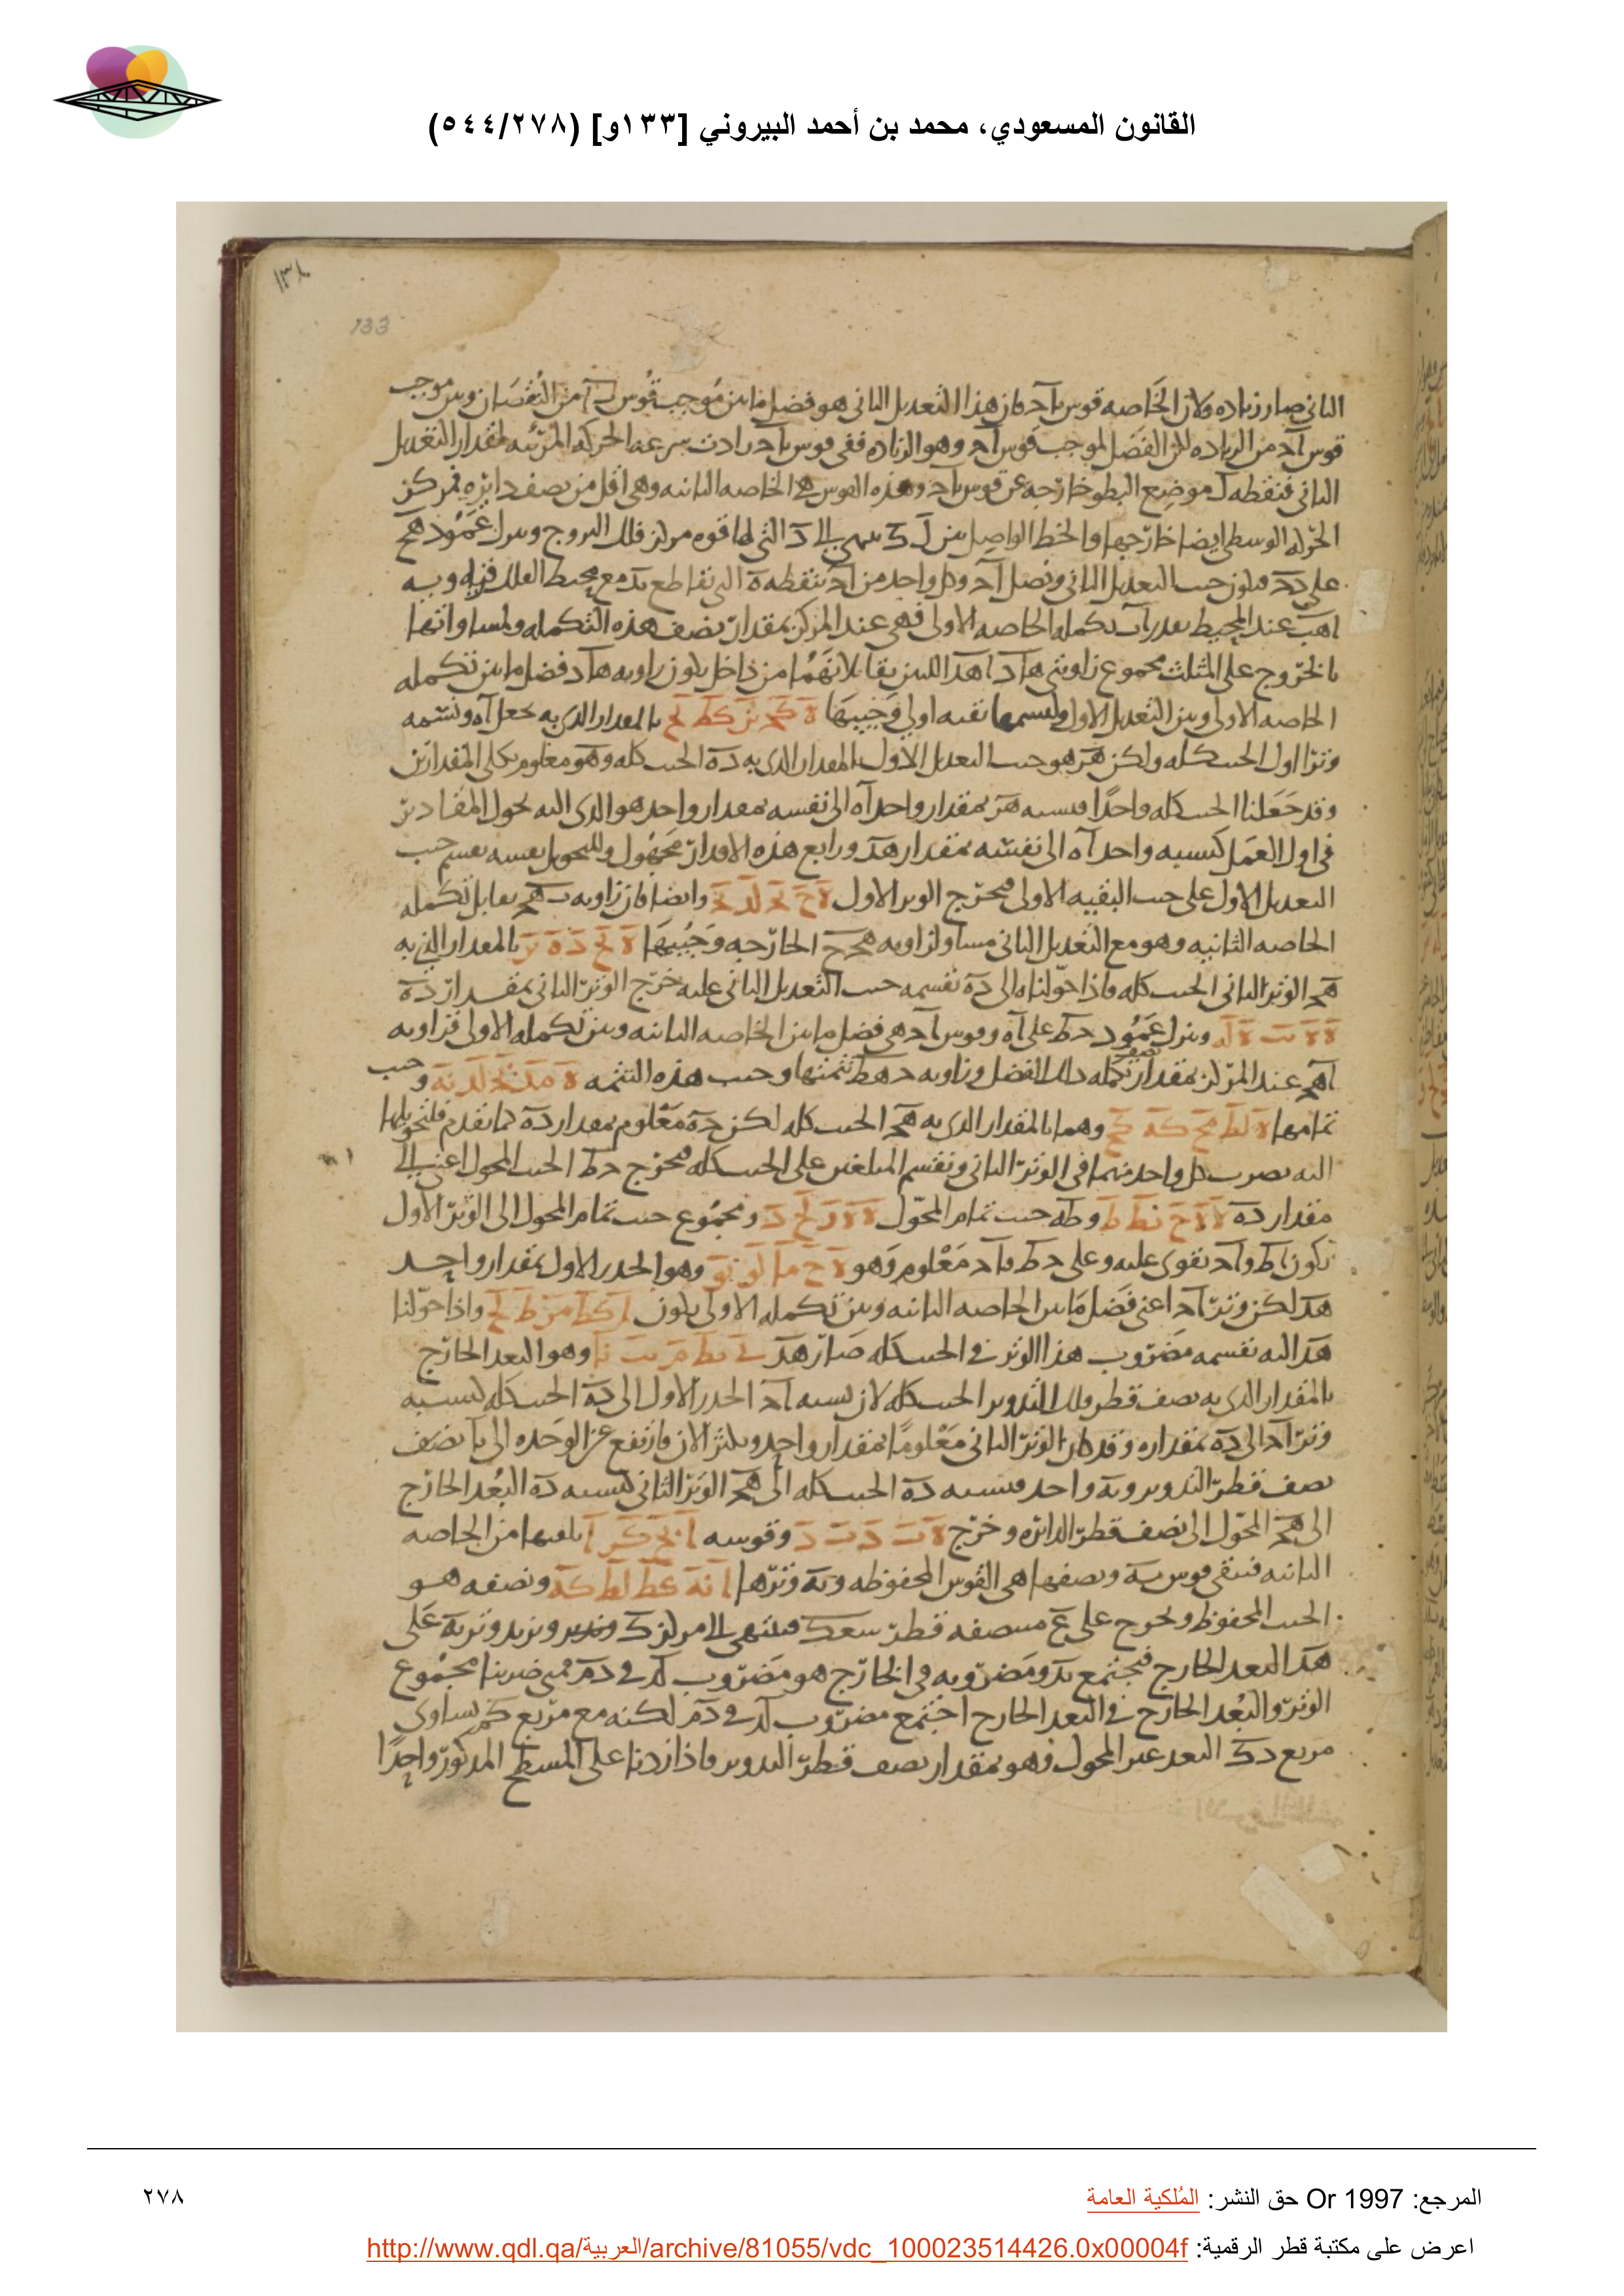 القانون المسعودي، محمد بن أحمد البيروني [١٣٣و] (٥٤٤/٢٧٨)
١٣٨
133
الثانى صار زياده ولان الخاصه قوس ٮاحـ كان هذا التعديل الثانى هو فضل ما بىن موجب قوس اٮ من النقصان وبىن موجب
قوس احـ من الزياده لكن الفضل لموجب قوس احـ وهو الزياده ففى قوس ٮاحـ زادت سرعه الحركه المرئيه بمقدار التعديل
الثانى فنقطه ل موضع البطو خارجه عن قوس ٮاحـ وهذه القوس هى الخاصه الثانيه وهى اقل من نصف دايره فمركز
الحركه الوسطى ايضا خارجها والخط الواصل بىن ل ك الى د التى لها قوه مركز فلك البروج وننزل عمود هح
على دحـ فيكون جيب التعديل الثانى ونصل احـ وكل واحد من احـ بنقطه ه التى تقاطع ٮد مع محيط الفلك فزاويه
اهب عند المحيط بقدر اب تكمله الخاصه الاولى فهى عند المركز بمقدار نصف هذه التكمله ولمساواتها
بالخروج على المثلث مجموع زاويتى هاد اهد اللىن يقابلانهما من داخل يكون زاويه هاد فضل ما بىن تكمله
الخاصه الاولى وبىن التعديل الاول ولنسمها بقيه اولى وجيبها بالمقدار الذى به نجعل اه ونسمه
وترا اول الجيب كله ولكن هر هو جيب التعديل الاول بالمقدار الذى به ده الجيب كله وهو معلوم بكلى المقدارىن
وقد جعلنا الجيب كله واحدا فنسبه هر بمقدار واحد اه الى نفسه بمقدار واحد هو الذى اليه نحول المقادير
فى اول العمل كنسبه واحد اه الى نفسه بمقدار هد ورابع هذه الاقدار مجهول وللتحويل نفسه نقسم جيب
التعديل الاول على جيب البقيه الاولى فيخرج الوتر الاول وايضا فان زاويه ٮهحـ يقابل تكمله
الخاصه الثانيه وهو مع التعديل الثانى مساو لزاويه هحـح الخارجه وجيبها بالمقدار الذى به
هحـ الوتر الثانى الجيب كله فاذا حولناه الى ده نقسمه جيب التعديل الثانى عليه خرج الوتر الثانى بمقدار ده
وننزل عمود حـط على اه وقوس احـ هى فضل ما بىن الخاصه الثانيه وبىن تكمله الاولى فزاويه
اهحـ عند المركز بمقدار نصف تكمله ذلك الفضل وزاويه حـهط تتمتها وجيب هذه التتمه وجيب
تمامها وهما بالمقدار الذى به هحـ الجيب كله لكن حـه معلوم بمقدار ده كما تقدم فلنحولها
اليه نضرب كل واحد منهما فى الوتر الثانى ونقسم المبلغين على الجيب كله فيخرج حـط الجيب المحول اعنى الى
مقدار ده وطه جيب تمام المحول ومجموع جيب تمام المحول الى الوتر الاول
يكون اط واحـ يقوى عليه وعلى حـط فاحـ معلوم وهو وهو الجذر الاول بمقدار واحد
هد لكن وتر احـ اعنى فضل ما بىن الخاصه الثانيه وبىن تكمله الاولى يكون واذا حولنا
هد اليه نقسمه مضروب هذا الوتر فى الجيب كله صار هد وهو البعد الخارج
بالمقدار الذى به نصف قطر فلك التدوير الجيب كله لان نسبه احـ الجذر الاول الى ده الجيب كله كنسبه
وتر احـ الى ده بمقداره وقد كان الوتر الثانى معلوما بمقدار واحد ويكثر الان فارتفع عن الوحده الى ما نصف
نصف قطر التدوير وبه واحد فنسبه ده الجيب كله الى هحـ الوتر الثانى كنسبه ده البعد الخارج
الى هحـ المحول الى نصف قطر الدائره وخرج وقوسه نلقيها من الخاصه
الثانيه فيبقى قوس ٮه ونصفها هى القوس المحفوظه وٮه وترها ونصفه هو
الجيب المحفوظ ونخرج على ع منتصفه قطر سعك فينتهى الى مركز ك ونزيد وتر ٮه على
هد البعد الخارج فيجتمع ٮد ومضروبه فى الخارج هو مضروب لد فى دم فمتى ضربنا مجموع
الوتر والبعد الخارج فى البعد الخارج اجتمع مضروب لد فى دم لكنه مع مربع كم يساوى
مربع دك البعد غير المحول وهو بمقدار نصف قطر التدوير فاذا زدنا على المسطح المذكور واحدا
المرجع: Or 1997 حق النشر: المُلكية العامة
٢٧٨
اعرض على مكتبة قطر الرقمية: http://www.qdl.qa/العربية/archive/81055/vdc_100023514426.0x00004f